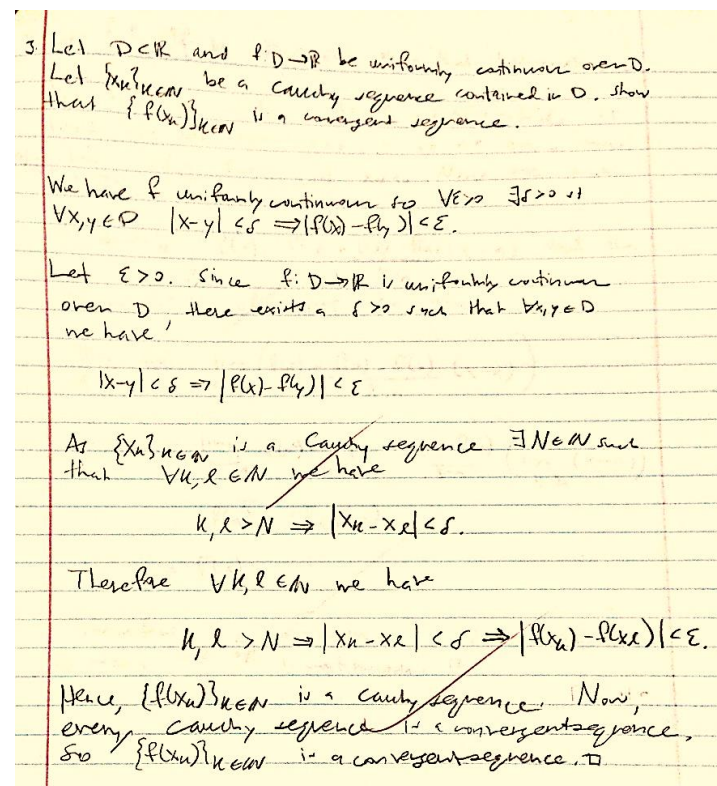 3. Let D⊂ℝ and f:D→ℝ be uniformly continuous over D.
Let {xₖ}ₖ∈ℕ be a Cauchy sequence contained in D. Show
that {f(xₖ)}ₖ∈ℕ is a convergent sequence.
We have f uniformly continuous so ∀ε>0 ∃δ>0 st
∀x,y∈D |x-y|<δ ⇒|f(x)-f(y)|<ε.
Let ε>0. Since f:D→ℝ is uniformly continuous
over D, there exists a δ>0 such that ∀x,y∈D
we have
|x-y|<δ ⇒ |f(x)-f(y)|<ε
As {xₖ}ₖ∈ℕ is a Cauchy sequence ∃N∈ℕ such
that ∀k,l∈ℕ we have
k,l>N ⇒ |xₖ-xₗ|<δ.
Therefore ∀k,l∈ℕ we have
k,l>N ⇒ |xₖ-xₗ|<δ ⇒ |f(xₖ)-f(xₗ)|<ε.
Hence, {f(xₖ)}ₖ∈ℕ is a Cauchy sequence. Now,
every Cauchy sequence is a convergent sequence,
so {f(xₖ)}ₖ∈ℕ is a convergent sequence. □